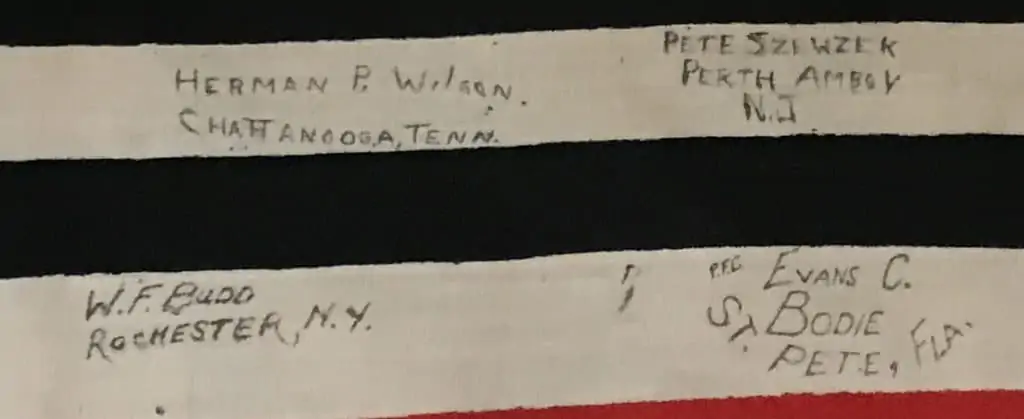 HERMAN P. WILSON.
CHATTANOOGA, TENN.
PETE SZEWZEK
PERTH AMBOY
N.J
W.F. BUDD
ROCHESTER, N.Y.
P.F.C EVANS C.
BODIE
ST. PETE, FLA.